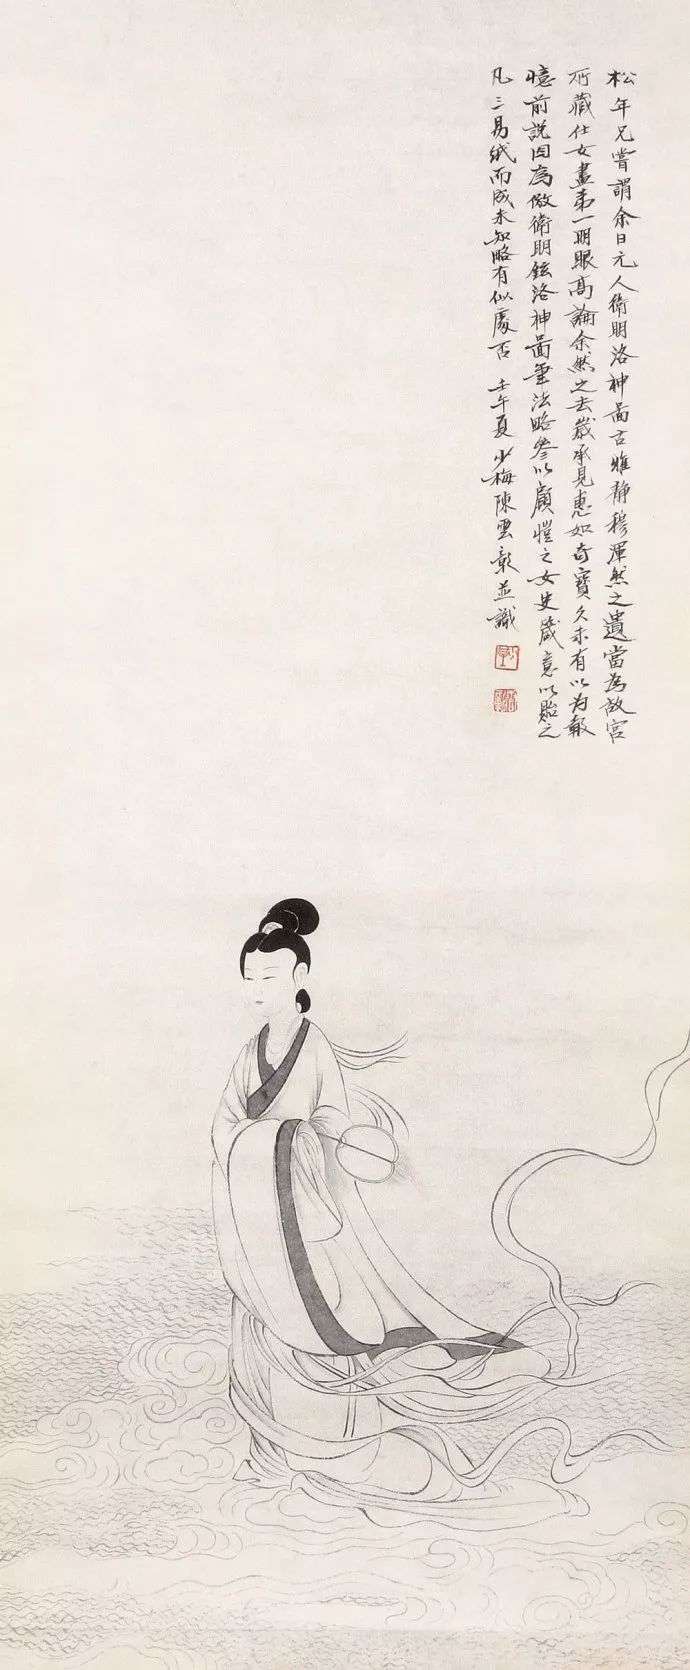 松年兄嘗謂余曰元人衛明洛神啚古雅静穆渾然之遺當為故宮
所藏仕女畫弟一明眼高論余然之去歲承見惠如奇寶久未有以为報
憶前說因為倣衛明鉉洛神啚筆法略參以顧愷之女史箴意以貽之
凡三易紙而成未知略有似處否 壬午夏 少梅陳雲彰並識